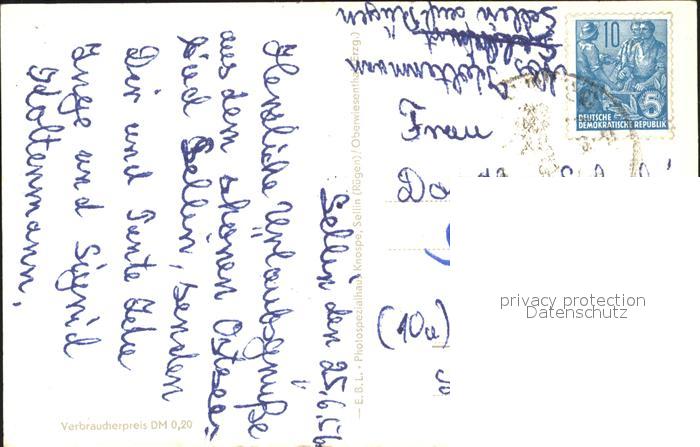 Sellin den 25.6.56
Herzliche Urlaubsgrüße
aus dem schönen Ostsee-
bad Sellin, senden
Dir und Tante Ida
Inge und Sigrid
Woltenmann.
Verbraucherpreis DM 0,20
— E.B.L. • Photospezialhaus Knospe, Sellin (Rügen)/Oberwiesenthal (Erzg.)
Sellin auf Rügen
Frau
(10a)
10
5
DEUTSCHE
DEMOKRATISCHE REPUBLIK
privacy protection
Datenschutz